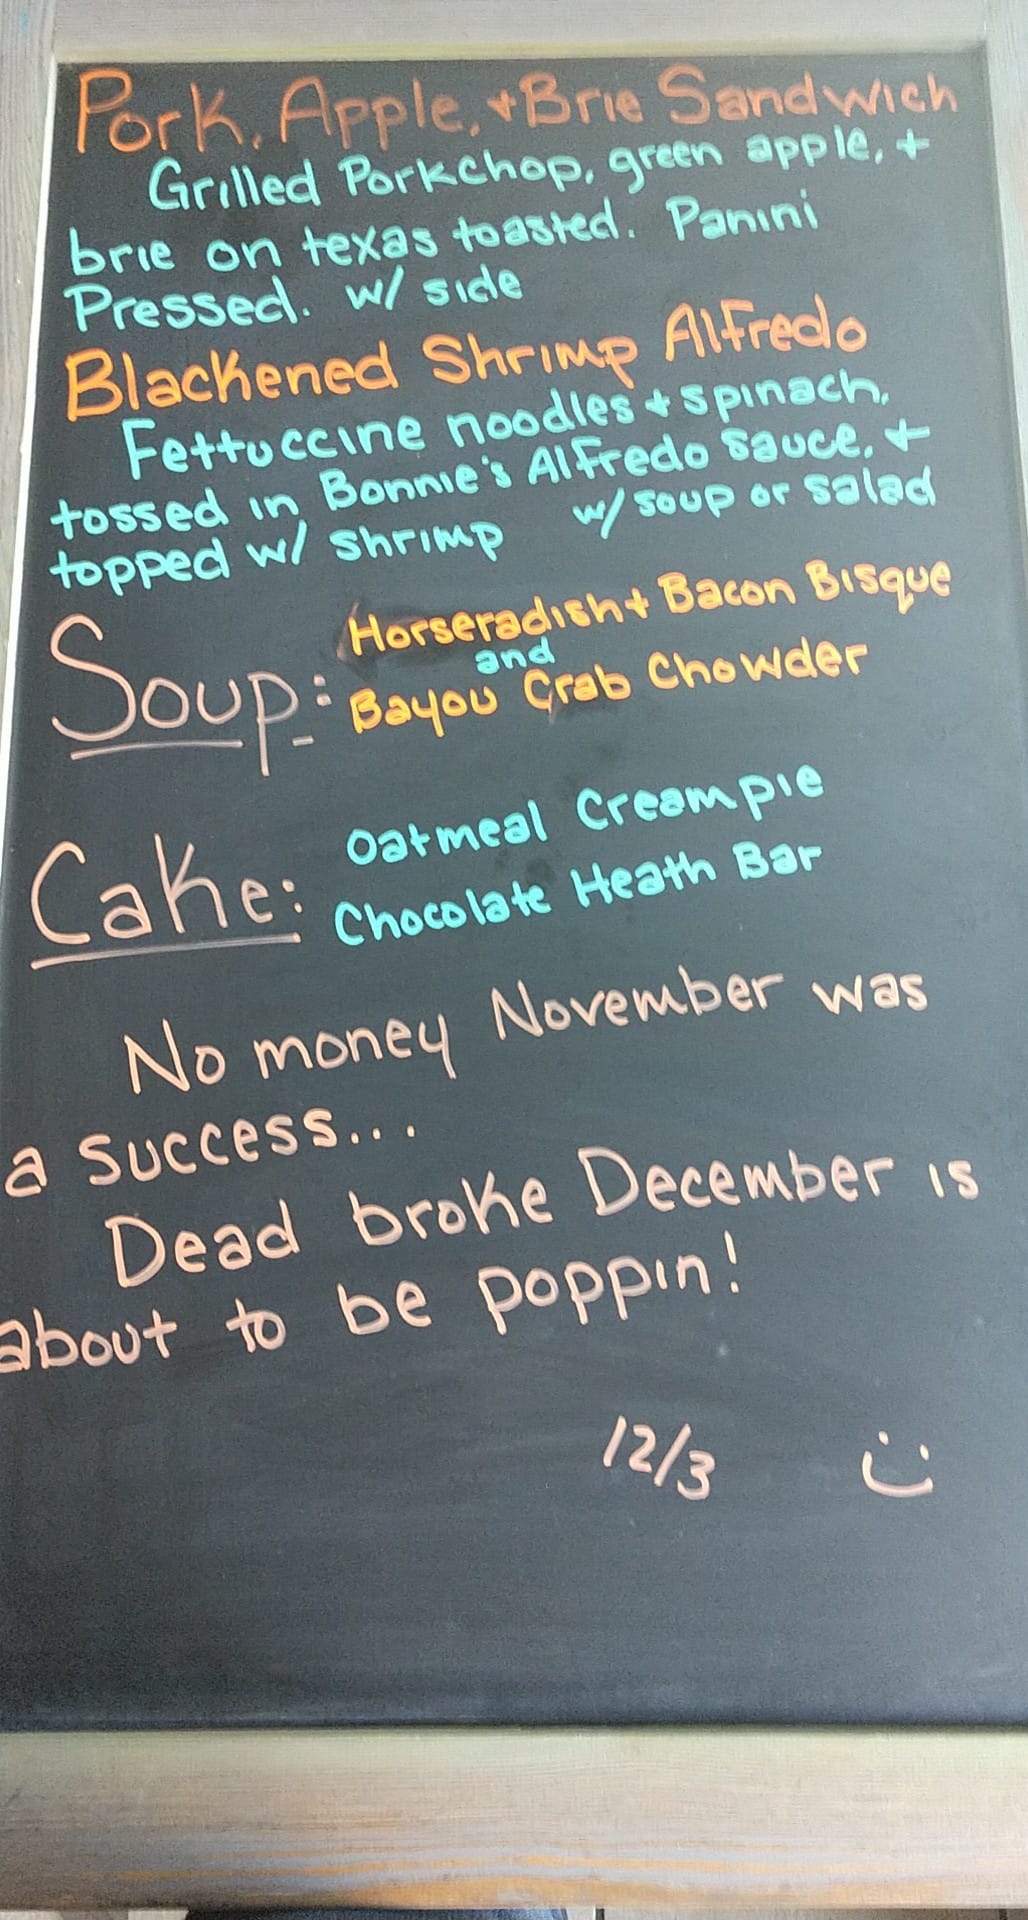 Pork, Apple, + Brie Sandwich
Grilled Porkchop, green apple, +
brie on texas toasted. Panini
Pressed. w/ side
Blackened Shrimp Alfredo
Fettuccine noodles + spinach,
tossed in Bonnie's Alfredo Sauce, +
topped w/ shrimp w/ soup or salad
Soup: Horseradish + Bacon Bisque
and
Bayou Crab Chowder
Cake: Oatmeal Creampie
Chocolate Heath Bar
No money November was
a success...
Dead broke December is
about to be poppin!
12/3 :)